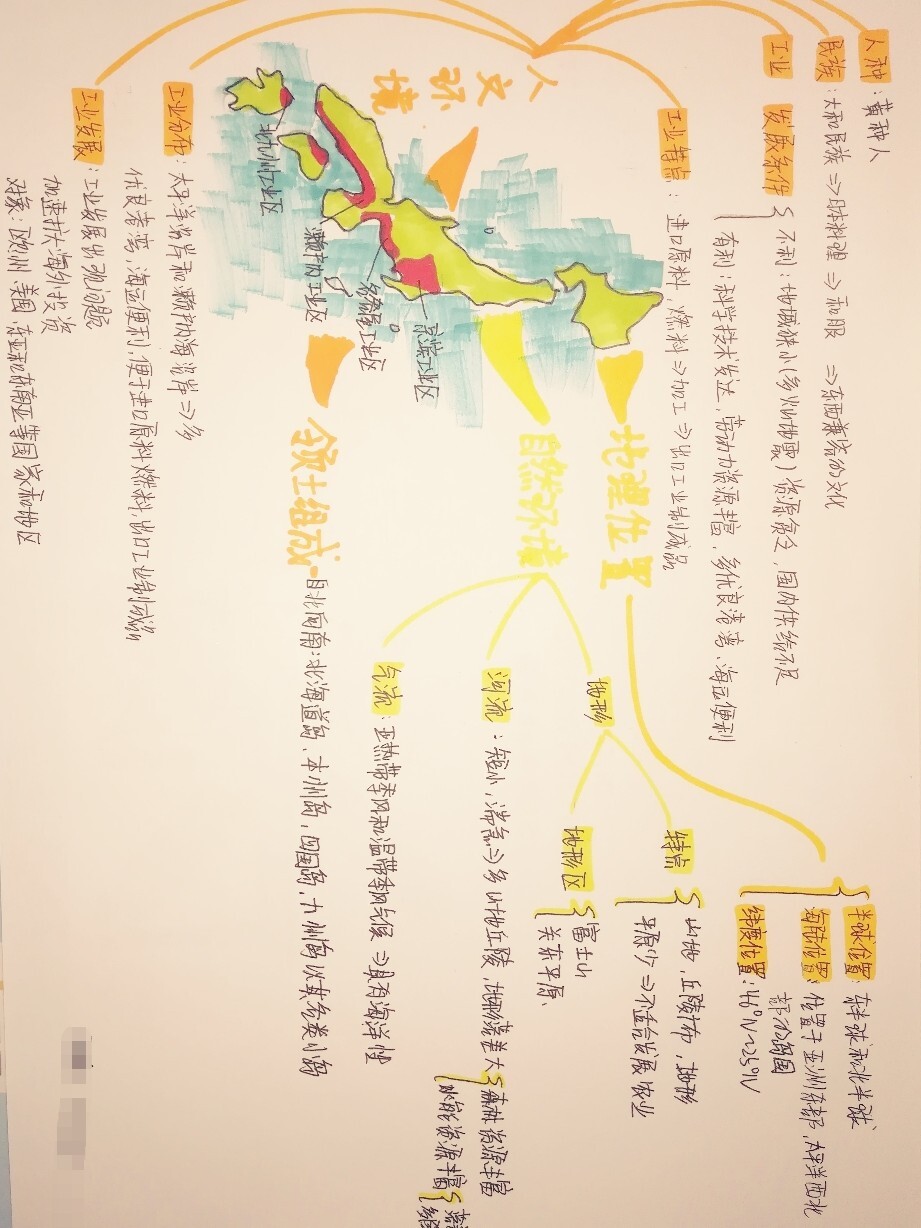 人种：黄种人
民族：大和民族⇒日本料理⇒和服⇒东西兼济的文化
工业 发展条件
不利：地域狭小(多火山地震)资源贫乏，国内供给不足
有利：科学技术发达，劳动力资源丰富，多优良港湾、海运便利
工业特点：进口原料，燃料⇒加工⇒出口工业制成品
人文环境
工业分布：太平洋沿岸和濑户内海沿岸⇒多
优良港湾，海运便利，便于进口原料燃料，出口工业制成品
工业发展：工业发展出现问题
加速扩大海外投资
对象：欧洲 美国 东亚和东南亚等国家和地区
北九州工业区
濑户内工业区
名古屋工业区
京滨工业区
地理位置
半球位置：东半球和北半球
海陆位置：位置于亚洲东部，太平洋西北
部的岛国
纬度位置：46°N~25°N
自然环境
地形
特点
山地，丘陵为中，地形
平原少⇒不适合发展农业
地形区
富士山
关东平原
河流：短小，湍急⇒多山地丘陵，地形落差大
森林资源丰富
水能资源丰富
气流：亚热带季风和温带季风气候⇒具有海洋性
领土组成-自北向南：北海道岛、本州岛，四国岛，九州岛以其它类小岛